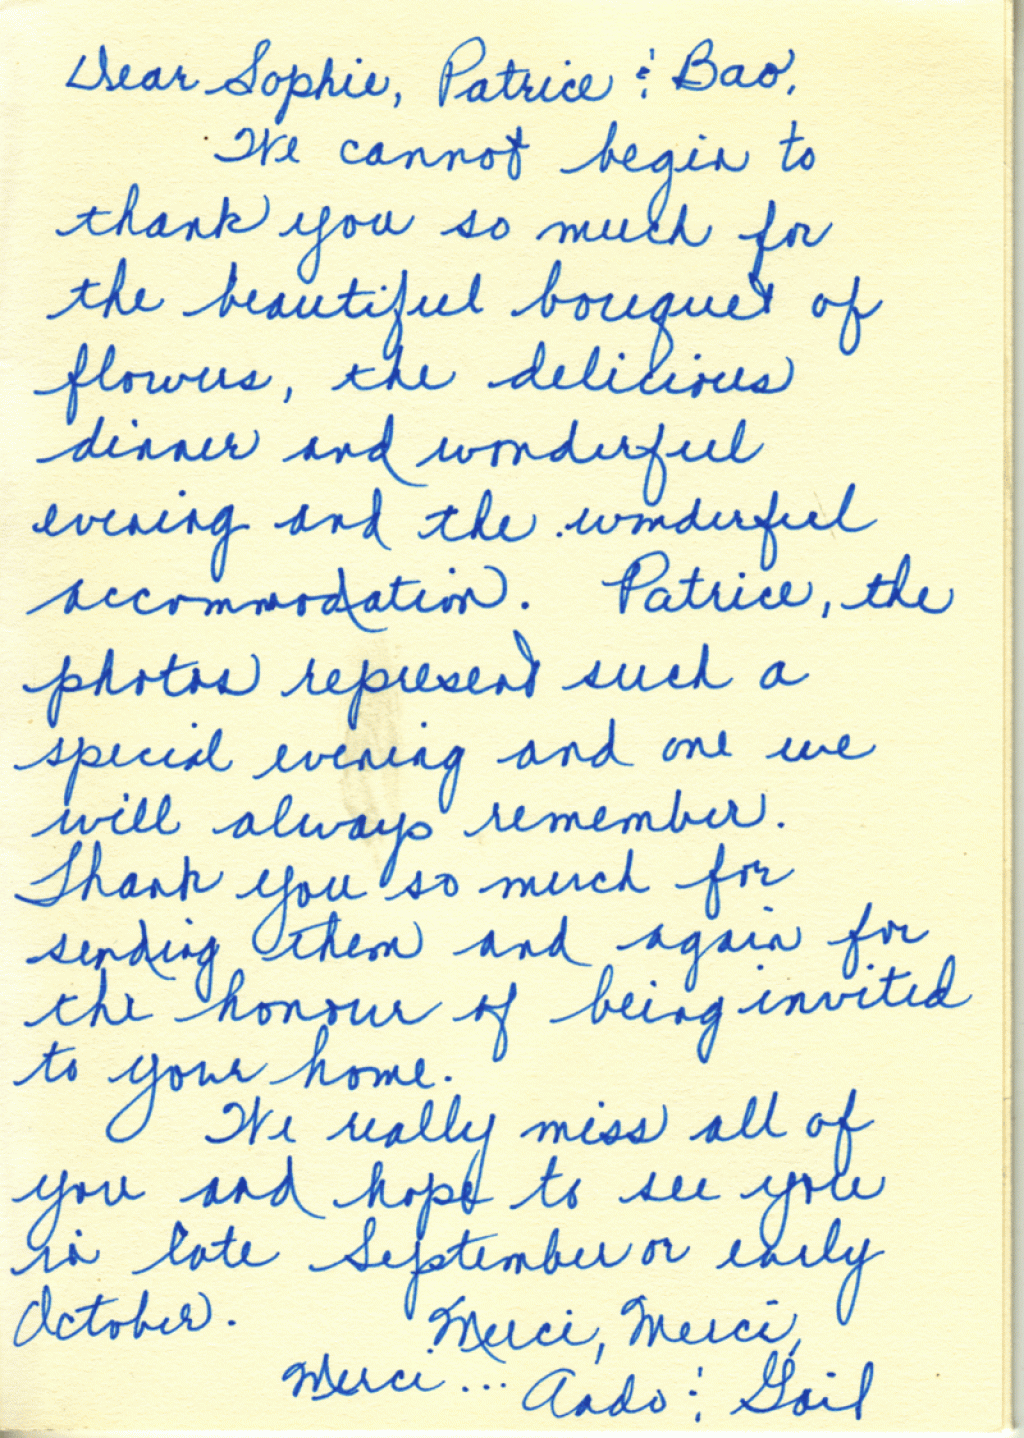 Dear Sophie, Patrice & Bao,
We cannot begin to
thank you so much for
the beautiful bouquet of
flowers, the delicious
dinner and wonderful
evening and the wonderful
accommodation. Patrice, the
photos represent such a
special evening and one we
will always remember.
Thank you so much for
sending them and again for
the honour of being invited
to your home.
We really miss all of
you and hope to see you
in late September or early
October.
Merci, Merci,
Merci... & Gail